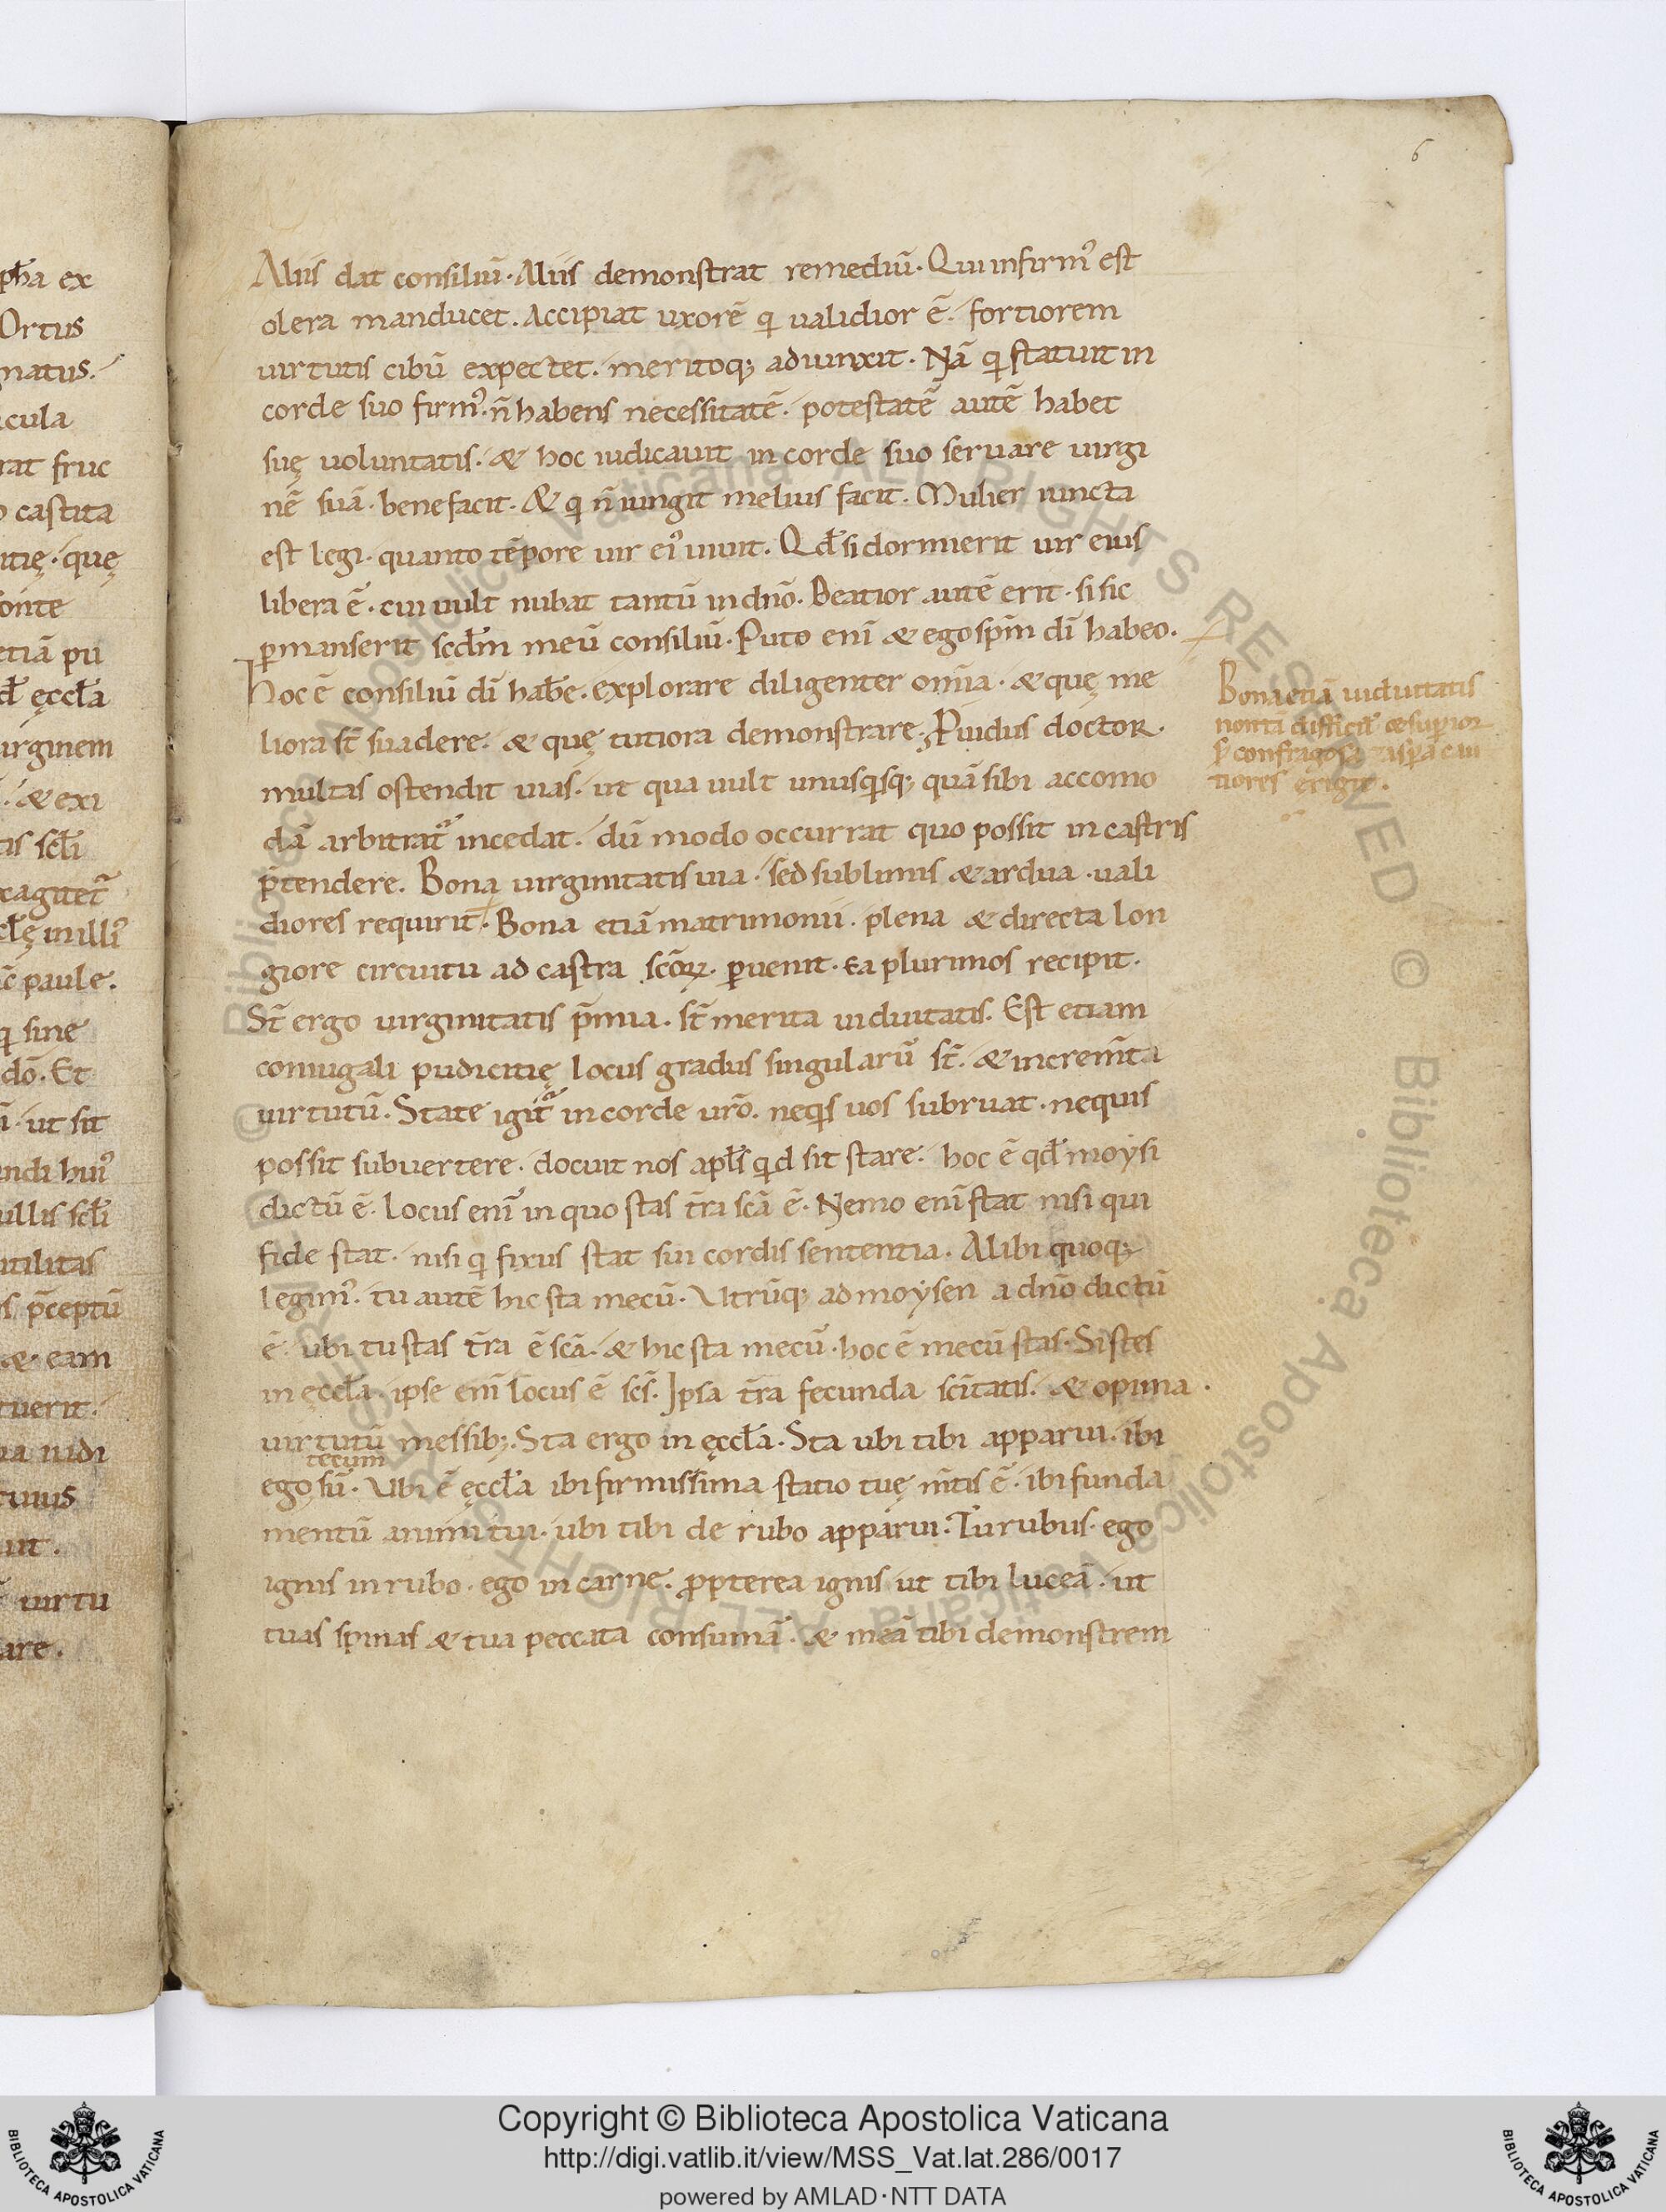 pħa ex
Ortus
matus.
cula
rat fruc
castita
itię. quę
fonte
etiā pu
ęccła
uirginem
& exi
tis scłi
exagitet̃
paule.
qi sine
dō. Et
ut sit
andi hui᾽
uillis scłi
utilitas
p̄ceptū
& eam
tuerit.
nidi
uirtu
are.
6
Aliis dat consiliū. Aliis demonstrat remediū. Qui infirm᾽ est
olera manducet. Accipiat uxorē qi ualidior ē. fortiorem
uirtutis cibū expectet. meritoq; adiunxit. Nā qi statuit in
corde suo firm᾽. ñ habens necessitatē. potestatē autē habet
suę uoluntatis. & hoc iudicauit in corde suo seruare uirgi
nē suā. bene facit. & qi ñ iungit melius facit. Mulier iuncta
est legi. quanto tēpore uir ei᾽ uiuit. Qđ si dormierit uir eius
libera ē. cui uult nubat tantū in dño. Beatior autē erit. si sic
ꝑmanserit scđm meū consiliū. Puto enī & ego sp̄m dī habeo.
Hoc ē consiliū dī habe. explorare diligenter omnia. & quę me
liora st̄ suadere. & quę tutiora demonstrare. Puidus doctor.
multas ostendit uias. ut qua uult unusqisq; quā sibi accomo
dā arbitrat᾽ incedat. dū modo occurrat quo possit in castris
p̄tendere. Bona uirginitatis uia. sed sublimis & ardua. uali
diores requirit. Bona etiā matrimonii. plena & directa lon
giore circuitu ad castra scōꝝ. ꝑuenit. ea plurimos recipit.
St̄ ergo uirginitatis p̄mia. st̄ merita uiduitatis. Est etiam
coniugali pudicitię locus gradus singularū st̄. & incremīta
uirtutū. State igit̃ in corde uro. neqis uos subruat. nequis
possit subuertere. docuit nos apłs qid sit stare. hoc ē qđ moysi
dictū ē. Locus enī in quo stas t̄ra scā ē. Nemo enī stat nisi qui
fide stat. nisi qi fixus stat sui cordis sententia. Alibi quoq;
legim᾽. tu autē hic sta mecū. Utrūq; ad moysen a dño dictū
ē. ubi tu stas t̄ra ē scā. & hic sta mecū. hoc ē mecū stas. Si stes
in ęccła. ipse enī locus ē scs̄. Ipsa t̄ra fecunda scītatis. & opima
uirtutū messib;. Sta ergo in ęccła. Sta ubi tibi apparui. ibi
tecum
ego sū. Ubi ē ęccła ibi firmissima statio tuę m̄tis ē. ibi funda
mentū animi tui. ubi tibi de rubo apparui. Tu rubus. ego
ignis in rubo. ego in carne. ꝓpterea ignis ut tibi luceā. ut
tuas spinas & tua peccata consumā. & meā tibi demonstrem
Bona etiā uiduitatis
non tā difficił & supior
s; confragosa
tiores erigit.
© Biblioteca Apostolica Vaticana ALL RIGHTS RESERVED
© Biblioteca Apostolica Vaticana ALL RIGHTS RESERVED
BIBLIOTECA APOSTOLICA VATICANA
Copyright © Biblioteca Apostolica Vaticana
http://digi.vatlib.it/view/MSS_Vat.lat.286/0017
powered by AMLAD·NTT DATA
BIBLIOTECA APOSTOLICA VATICANA